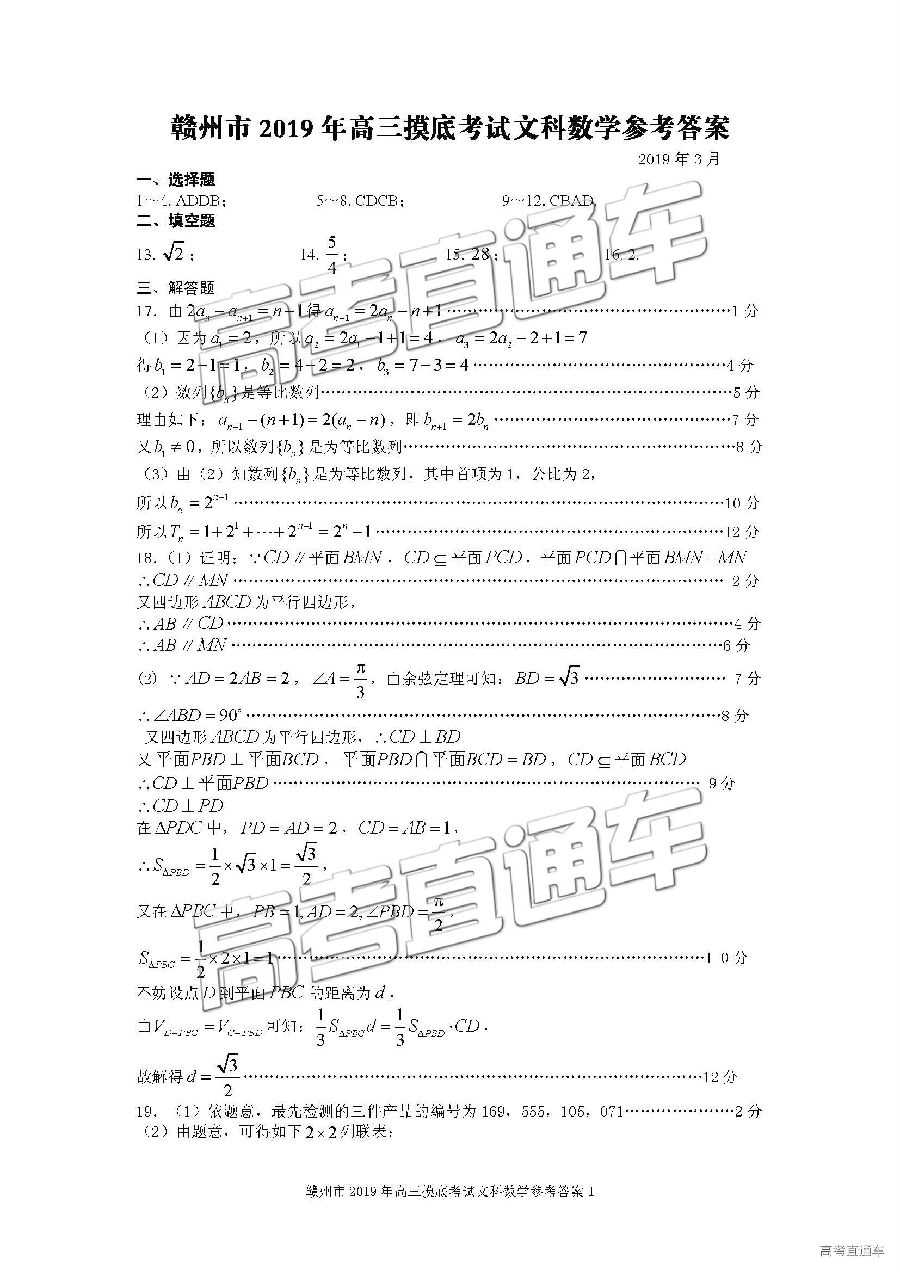 赣州市2019年高三摸底考试文科数学参考答案
2019年3月
一、选择题
1~4. ADDB; 5~8. CDCB; 9~12. CBAD.
二、填空题
13. √2; 14. 5/4; 15. 28; 16. 2.
三、解答题
17. 由2aₙ−aₙ₊₁=n−1得aₙ₊₁=2aₙ−n+1……1分
(1)因为a₁=2,所以a₂=2a₁−1+1=4,a₃=2a₂−2+1=7
得b₁=2−1=1,b₂=4−2=2,b₃=7−3=4……4分
(2)数列{bₙ}是等比数列……5分
理由如下:aₙ₊₁−(n+1)=2(aₙ−n),即bₙ₊₁=2bₙ……7分
又b₁≠0,所以数列{bₙ}是为等比数列……8分
(3)由(2)知数列{bₙ}是为等比数列,其中首项为1,公比为2,
所以bₙ=2ⁿ⁻¹……10分
所以Tₙ=1+2¹+⋯+2ⁿ⁻¹=2ⁿ−1……12分
18.(1)证明:∵CD∥平面BMN,CD⊆平面PCD,平面PCD⋂平面BMN=MN
∴CD∥MN……2分
又四边形ABCD为平行四边形,
∴AB∥CD……4分
∴AB∥MN……6分
(2)∵AD=2AB=2,∠A=π/3,由余弦定理可知:BD=√3……7分
∴∠ABD=90°……8分
又四边形ABCD为平行四边形,∴CD⊥BD
又平面PBD⊥平面BCD,平面PBD⋂平面BCD=BD,CD⊆平面BCD
∴CD⊥平面PBD……9分
∴CD⊥PD
在ΔPDC中,PD=AD=2,CD=AB=1,
∴S_ΔPBD=1/2×√3×1=√3/2,
又在ΔPBC中,PB=1,AD=2,∠PBD=π/2,
S_ΔPBC=1/2×2×1=1……10分
不妨设点D到平面PBC的距离为d,
由V_D−PBC=V_C−PBD可知:1/3S_ΔPBC d=1/3S_ΔPBD·CD,
故解得d=√3/2……12分
19.(1)依题意,最先检测的三件产品的编号为169,555,105,071……2分
(2)由题意,可得如下2×2列联表:
赣州市2019年高三摸底考试文科数学参考答案1
高考直通车
高考直通车
高考直通车